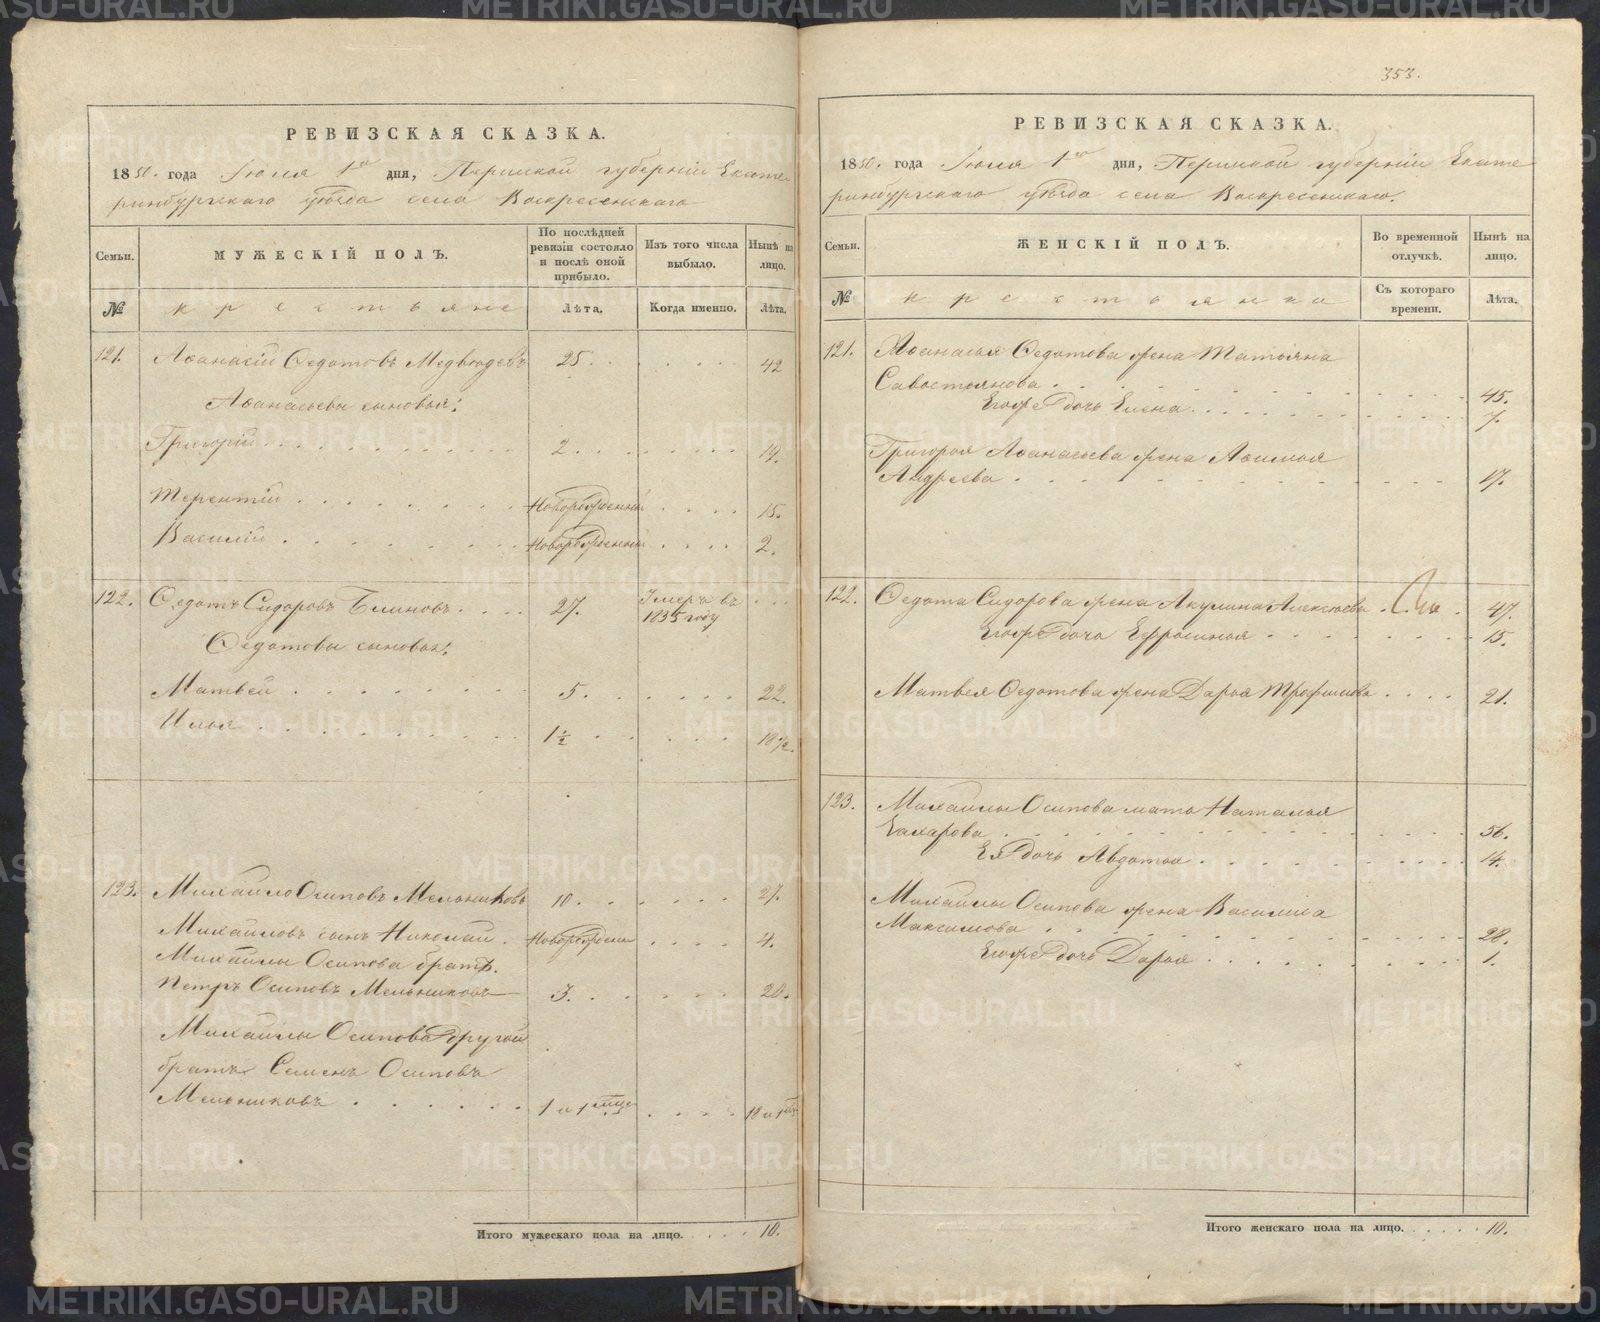 РЕВИЗСКАЯ СКАЗКА.
1850. года Іюля 1го дня, Пермской губерніи Екате
ринбургскаго уѣзда села Воскресенскаго
Семьи.
МУЖЕСКІЙ ПОЛЪ.
По послѣдней ревизіи состояло и послѣ оной прибыло.
Изъ того числа выбыло.
Нынѣ на лицо.
№
крестьяне
Лѣта.
Когда именно.
Лѣта.
121. Аѳанасій Ѳедотовъ Медведевъ 25. 42
Аѳанасьевы сыновья:
Григорій 2. 19.
Терентій Новорожденный 15.
Василій Новорожденный 2.
122. Ѳедотъ Сидоровъ Блиновъ 27. Умеръ въ
1835 году
Ѳедотовы сыновья:
Матвей 5. 22.
Илья 1½ 18½.
123. Михайло Осиповъ Мельниковъ 10. 27.
Михайловъ сынъ Николай Новорожденный 4.
Михайлы Осипова братъ
Петръ Осиповъ Мельниковъ 3. 20.
Михайлы Осипова другой
братъ Семенъ Осиповъ
Мельниковъ 1 и 1 18 и 1
Итого мужескаго пола на лицо. 10.
353.
РЕВИЗСКАЯ СКАЗКА.
1850. года Іюля 1го дня, Пермской губерніи Екате
ринбургскаго уѣзда села Воскресенскаго.
Семьи.
ЖЕНСКІЙ ПОЛЪ.
Во временной отлучкѣ.
Нынѣ на лицо.
№
крестьянки
Съ котораго времени.
Лѣта.
121. Аѳанасья Ѳедотова жена Татьяна
Савостьянова 45.
Егоже дочь Елена 7.
Григорья Аѳанасьева жена Аѳимья
Андреева 17.
122. Ѳедота Сидорова жена Акулина Алексѣева 47.
Егоже дочь Ефросинья 15.
Матвея Ѳедотова жена Дарья Трофимова 21.
123. Михайлы Осипова мать Наталья
Захарова 56.
Ея дочь Авдотья 14.
Михайлы Осипова жена Василиса
Максимова 28.
Егоже дочь Дарья 1.
Итого женскаго пола на лицо. 10.
METRIKI.GASO-URAL.RU